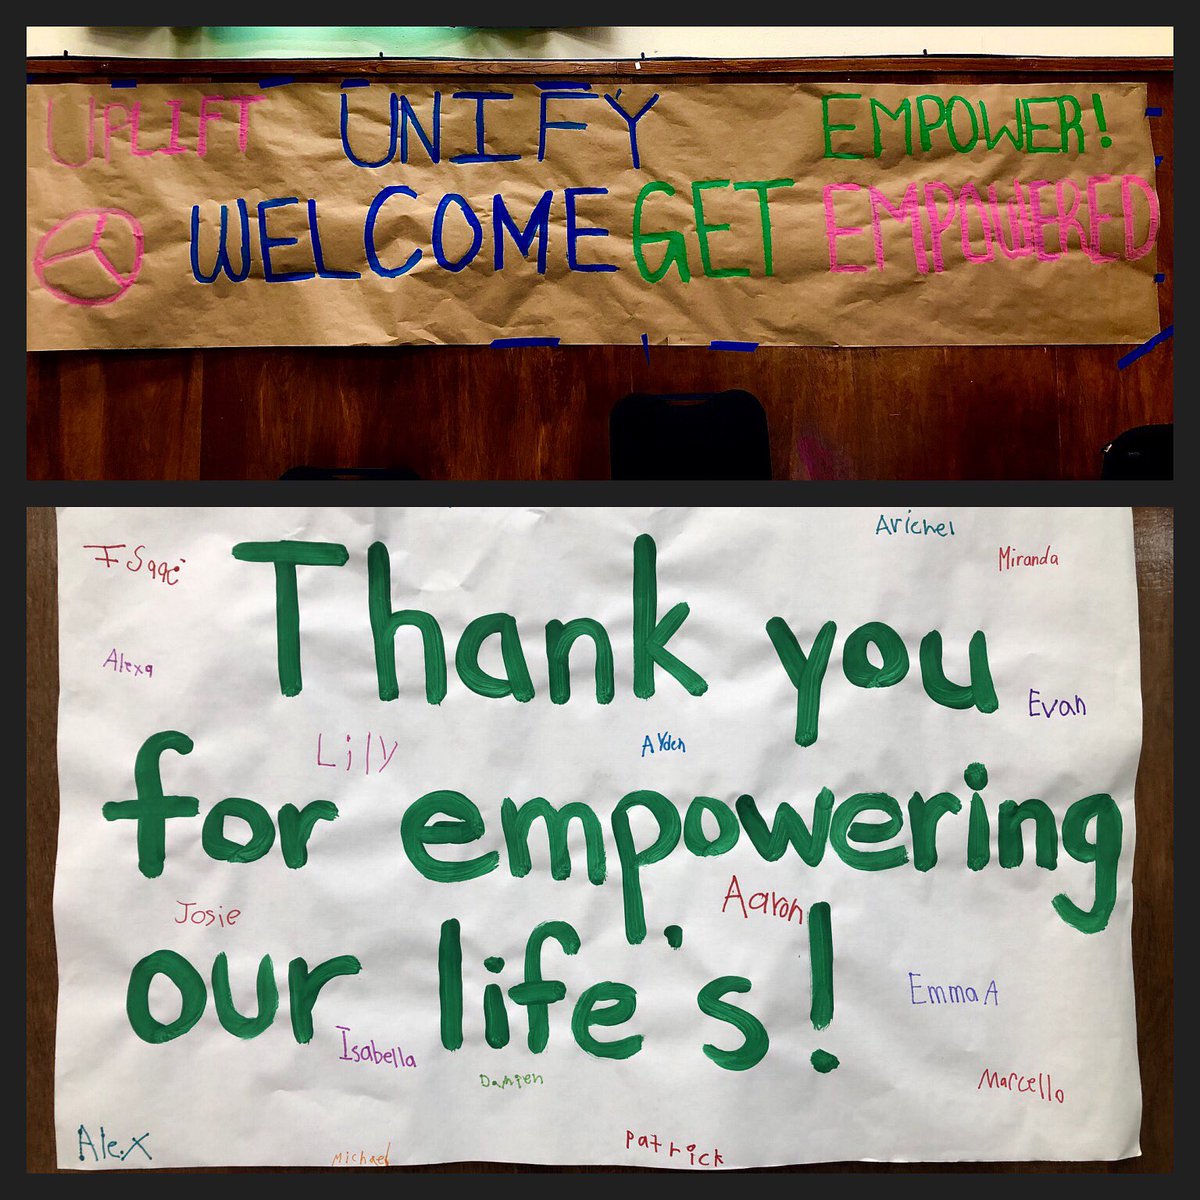 UPLIFT UNIFY EMPOWER!
WELCOME GET EMPOWERED
Arichel
Isaac
Miranda
Thank you
Alexa
Evan
Lily
Ayden
for empowering
Josie
Aaron
our life's!
Emma A
Isabella
Damien
Marcello
Alex
Michael
Patrick